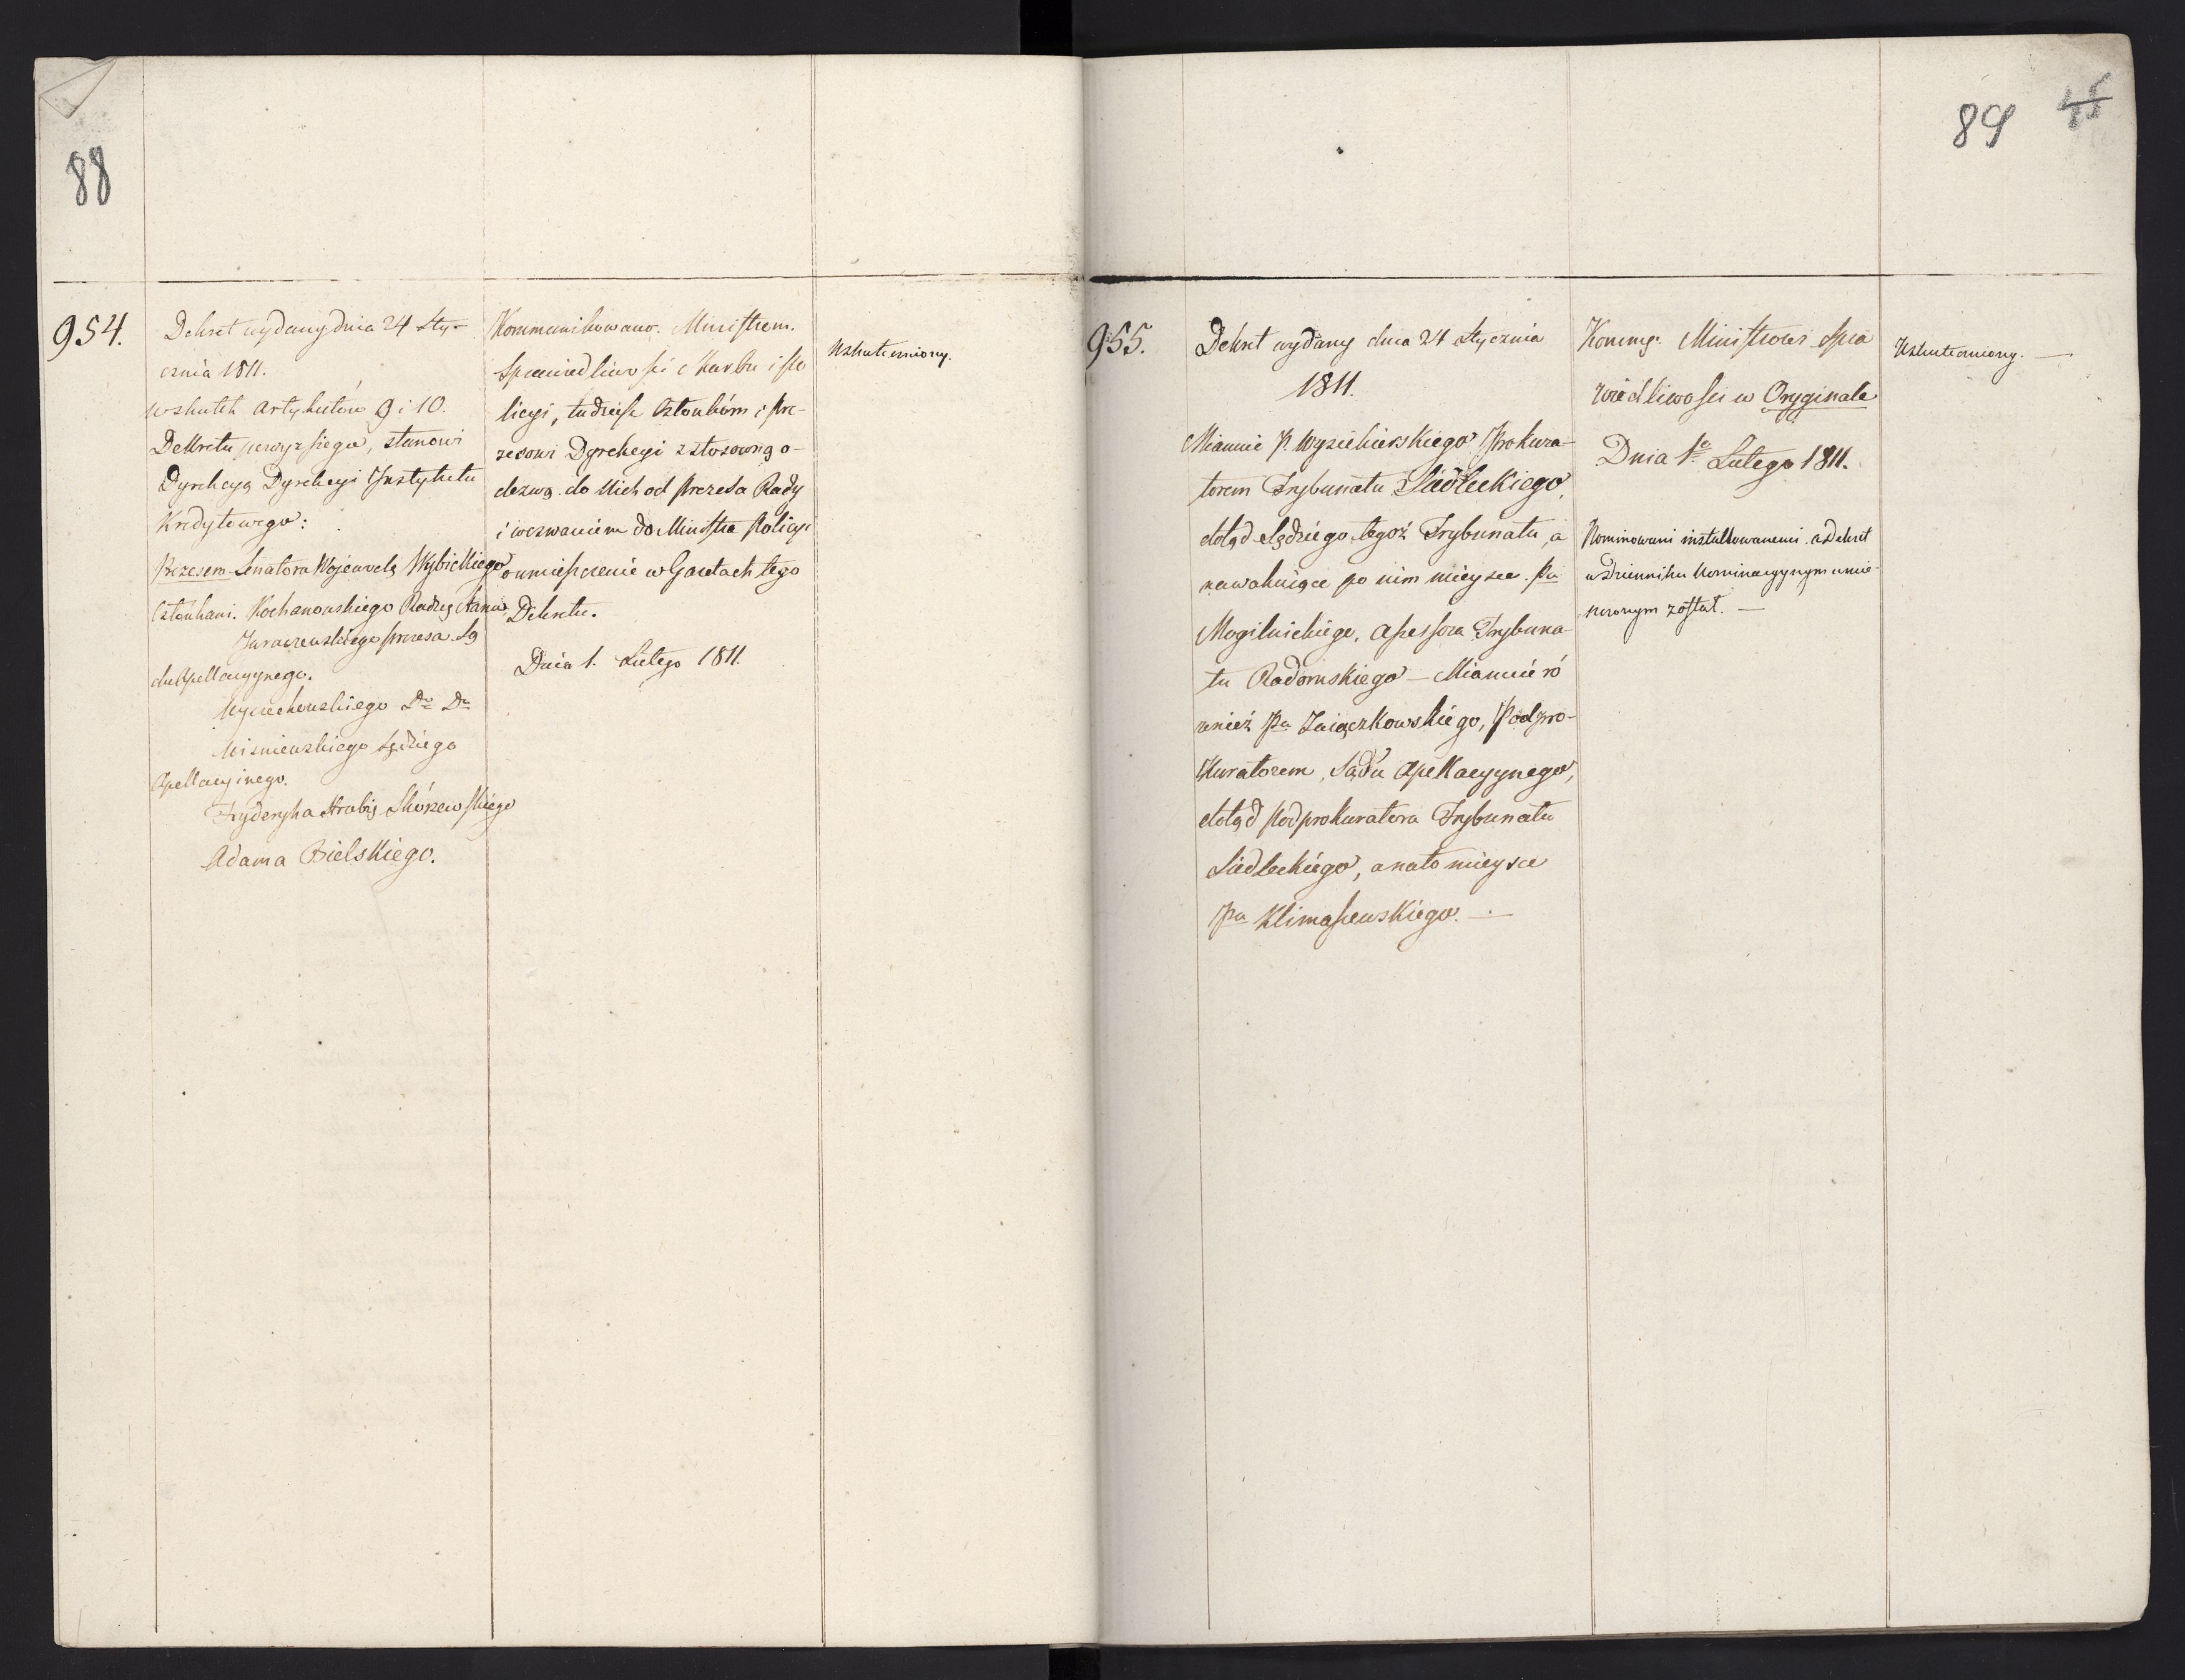 88
954.
Dekret wydany dnia 24 Sty-
cznia 1811.
wskutek Artykułów 9 i 10.
Dekretu powyższego, stanowi
Dyrekcyą Dyrekcyi Instytutu
Kredytowego:
Prezesem Senatora Wojewodę Wybickiego
Członkami. Kochanowskiego Radzcę Stanu
Jaraczewskiego Prezesa Są
du Apellacyynego.
Woyciechowskiego Do Do
Wisniewskiego Sędziego
Apellacyinego.
Fryderyka Hrabię Skórzewskiego
Adama Bielskiego.
Kommunikowano. Ministrom.
Sprawiedliwości Skarbu i Po
licyi, tudzież Członkóm i Pre-
zesowi Dyrekcyi z stosowną o-
dezwą do Nich od Prezesa Rady
i wezwaniem do Ministra Policyi
o umieszczenie w Gazetach tego
Dekretu.
Dnia 1. Lutego 1811.
Uskuteczniony.
89 45
955.
Dekret wydany dnia 24 Stycznia
1811.
Mianuie P. Wyziekierskiego Prokura-
torem Trybunału Siedleckiego,
dotąd Sędziego tegoż Trybunału, a
na wakuiące po nim mieysce Pa
Mogilnickiego, Assessora Trybuna-
łu Radomskiego — Mianuie ró
wnież Pa Zaiączkowskiego, Podpro-
kuratorem, Sądu Apellacyynego,
dotąd Podprokuratora Trybunału
Siedleckiego, a na to mieysce
Pa Klimaszewskiego. —
Kommg. Ministrowi Spra
wiedliwości w Oryginale
Dnia 1o Lutego 1811.
Nominowani installowanemi a Dekret
w dzienniku Nominacyynym umie-
szczonym został. —
Uskuteczniony. —